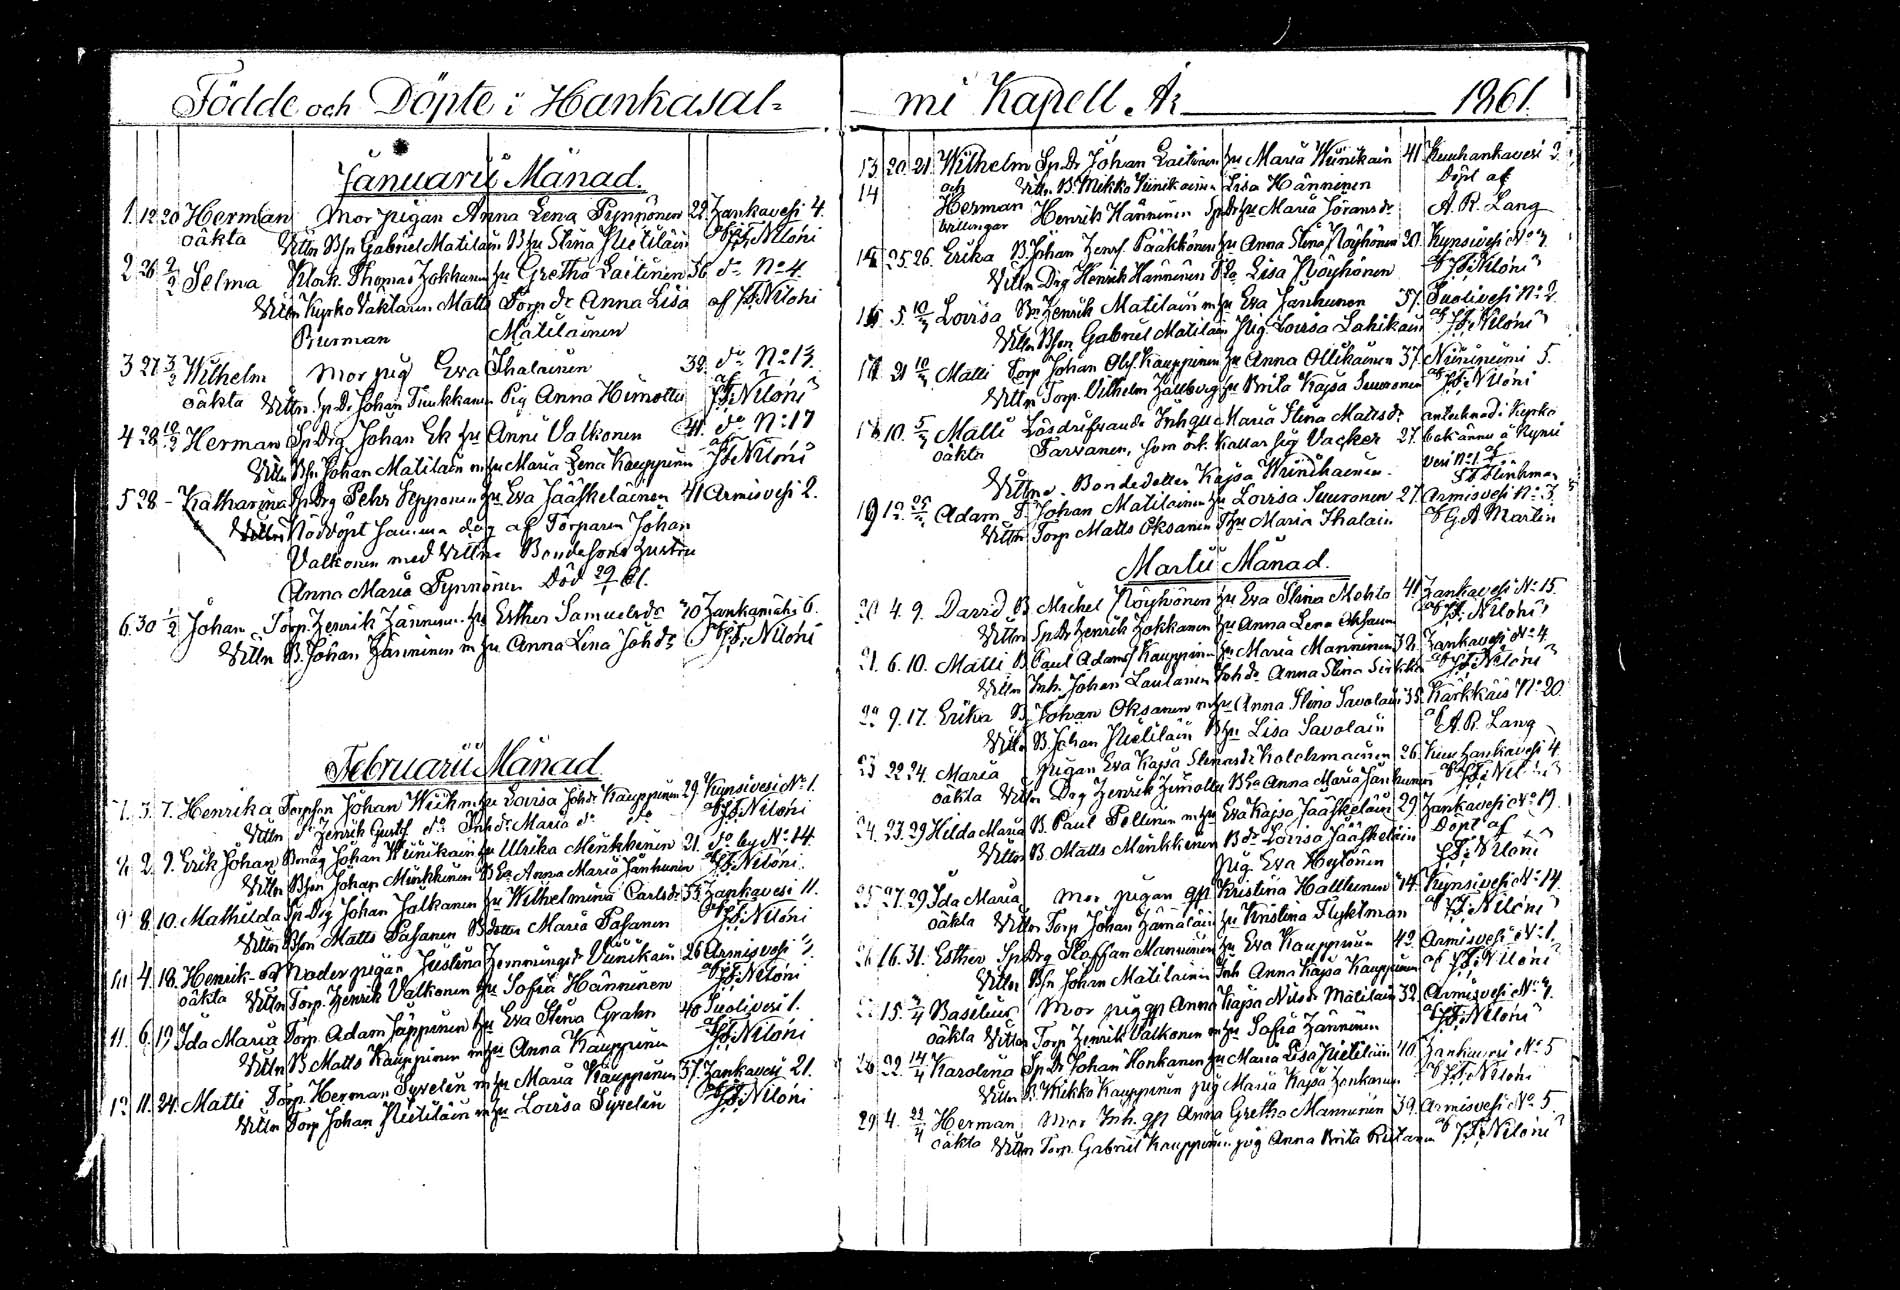 Födde och Döpte i Hankasal-
Januarii Månad.
1. 12 20 Herman Mor pigan Anna Lena Pynnönen 22. Hankavesi 4.
oäkta Vittn Bsn Gabriel Matilain B hu Stina Pietiläin af J.F. Niloni
2 26 2/2 Selma Klock. Thomas Hokkanen hu Gretha Laitinen 36 do No 4.
Vittn Kyrko Vaktaren Matts Torp. dr Anna Lisa af J.F. Niloni
Purman Matilainen
3 27 3/2 Wilhelm Mor pig Eva Ihalainen 32. do No 13
oäkta Vittn Sp. Dr Johan Tiukkanen Pig Anna Himottu af J.F. Niloni
4 28 10/2 Herman Sp Drg Johan Ek hu Anni Valkonen 41. do No 17
Vittn Bsn Johan Matilain m hu Maria Lena Kauppinen af J.F. Niloni
5 28 - Katharina Sp Drg Pehr Sepponen hu Eva Jääskeläinen 41 Armisvesi 2.
Vittn Nöddöpt samma dag af Torparen Johan
Valkonen med Vittne Bondesons hustru
Anna Maria Pynnönen Död 29/1 61.
6. 30 1/2 Johan Torp. Henrik Hänninen hu Esther Samuelsdr 40 Hankamäki 6.
Vittn B. Johan Hänninen m hu Anna Lena Johdr af J.F. Niloni
Februarii Månad
7. 3. 7. Henrika Torpson Johan Wiik m hu Lovisa Johdr Kauppinen 29. Kynsivesi No 1.
Vittn do Henrik Gustf do Inh dr Maria do do af J.F. Niloni
8 2. 9. Erik Johan Bmåg Johan Wiinikain hu Ulrika Minkkinen 21. do by No 14.
Vittn Bson Johan Minkkinen B Ea Anna Maria Janhunen af J.F. Niloni
9 8. 10. Mathilda Sp Drg Johan Jalkanen hu Wilhelmina Carlsdr 33 Hankavesi 11.
Vittn Bson Matts Pasanen B dotter Maria Pasanen af J.F. Niloni
10 4. 18. Henrik Moder pigan Justina Hemmingsdr Viinikain 26 Armisvesi 7.
oäkta Vittn Torp. Henrik Valkonen hu Sofia Hänninen af J.F. Niloni
11 6. 19 Ida Maria Torp. Adam Jäppinen hu Eva Stina Grahn 40 Suolivesi 1.
Vittn B Matts Kauppinen m hu Anna Kauppinen af J.F. Niloni
12 11. 24. Matti Torp. Herman Syrelin m hu Maria Kauppinen 37. Hankavesi 21.
Vittn Torp Johan Pietiläin m hu Lovisa Syrelin af J.F. Niloni
mi Kapell År 1861.
13 20. 21 Wilhelm Sp. Dr Johan Laitinen hu Maria Wiinikain 41 Kuuhankavesi 3.
14 och Vittn. B. Mikko Viinikainen Lisa Hänninen Döpt af
Herman Henrik Hänninen Sp Dr hu Maria Jöransdr A. R. Lang
tvillingar
15 25. 26. Erika B. Johan Henr. Pääkkönen hu Anna Stina Pöyhönen 30. Kynsivesi No 7.
Vittn Drg Henrik Hänninen B Ea Lisa Pöyhönen af J.F. Niloni
16 5. 10/3 Lovisa Bn Henrik Matilain m hu Eva Janhunen 37. Suolivesi No 2.
Vittn Bson Gabriel Matilain Pig Lovisa Lahikain af J.F. Niloni
17 21 10/3 Matti Torp Johan Olof Kauppinen hu Anna Ollikainen 37. Niininiemi 5.
Vittn Torp. Vilhelm Hällberg hu Brita Kajsa Suuronen af J.F. Niloni
18 10. 5/3 Matti Lösdrifvande Inh qu Maria Stina Mattsdr antecknad i Kyrko
oäkta Tarvanen, som ock kallar sig Vacker 27. bokånne å Kynsi
vesi No 1. af
Vittne. Bondedotter Kajsa Wiinikainen. Stenbman
19 12. 25/3 Adam T. Johan Matilainen hu Lovisa Suuronen 27. Armisvesi No 3.
Vittn Torp Matts Oksanen T hu Maria Ihalain af G. A. Martin
Martii Månad.
20 4. 9. David B Michel Pöyhönen hu Eva Stina Mehto 41 Hankavesi No 15.
Vittn Sp Dr Henrik Hokkanen hu Anna Lena Oksanen af J.F. Niloni
21. 6. 10. Matti B Paul Adamsf Kauppinen hu Maria Manninen 32. Hankavesi No 4.
Vittn Inh. Johan Lautanen Inh dr Anna Stina Sirkka af J.F. Niloni
22 9. 17. Erika B Johan Oksanen m hu Anna Stina Savolain 35. Kärkkäis No 20.
Vittn B. Johan Pietiläin B hu Lisa Savolain af A. R. Lang
23 22. 24. Maria pigan Eva Kajsa Stinasdr Kolehmainen 26. Kuuhankavesi 4.
oäkta Vittn Drg Henrik Himottu B Ea Anna Maria Janhunen af J.F. Niloni
24. 23. 29 Hilda Maria B. Paul Pollinen m hu Eva Kajsa Jääskeläin 29. Hankavesi No 19.
Vittn B. Matts Minkkinen B dr Lovisa Jääskeläin Döpt af
Pig. Eva Heytönen J.F. Niloni
25 27. 29 Ida Maria Mor pigan qp Kristina Halttunen 44. Kynsivesi No 14.
oäkta Vittn Torp Johan Hämäläin hu Kristina Flyktman af J.F. Niloni
26 16. 31. Esther Sp Drg Staffan Manninen hu Eva Kauppinen 42. Armisvesi No 1.
Vittn Bsn Johan Matilainen Inh Anna Kajsa Kauppinen af J.F. Niloni
15. 7/4 Basilius Mor pig qp Anna Kajsa Nilsdr Matilain 32. Armisvesi No 7.
oäkta Vittn Torp Henrik Valkonen m hu Sofia Hänninen af J.F. Niloni
28 22. 14/4 Karolina Sp Dr Johan Honkanen hu Maria Lisa Pietiläin 40. Hankavesi No 5
Vittn B. Mikko Kauppinen pig Maria Kajsa Honkanen af J.F. Niloni
29 4. 22/4 Herman Mor Inh. qp Anna Gretha Manninen 39. Armisvesi No 5.
oäkta Vittn Torp. Gabriel Kauppinen pig Anna Brita Riitanen af J.F. Niloni